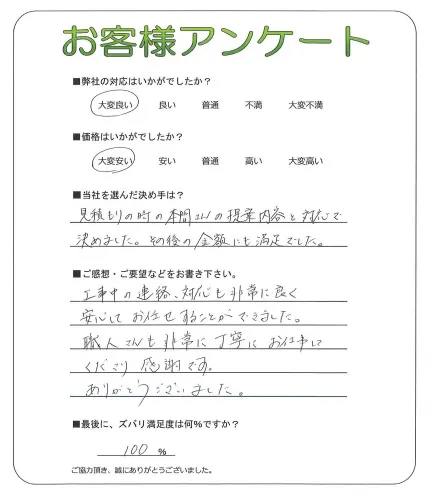 お客様アンケート
■弊社の対応はいかがでしたか？
大変良い 良い 普通 不満 大変不満
■価格はいかがでしたか？
大変安い 安い 普通 高い 大変高い
■当社を選んだ決め手は？
見積もりの時の本間さんの提案内容と対応で
決めました。その後の金額にも満足でした。
■ご感想・ご要望などをお書き下さい。
工事中の連絡、対応も非常に良く
安心してお任せすることができました。
職人さんも非常に丁寧にお仕事して
くださり感謝です。
ありがとうございました。
■最後に、ズバリ満足度は何%ですか？
100 %
ご協力頂き、誠にありがとうございました。